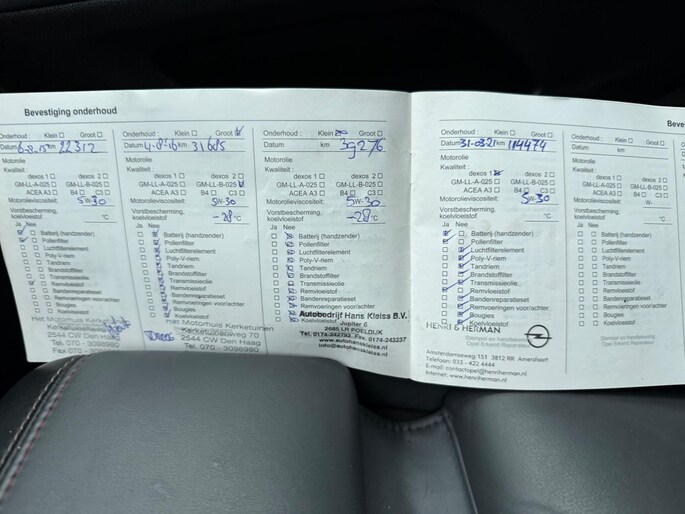 Bevestiging onderhoud
Onderhoud : Klein Groot
Datum 6-8-15 km 22312
Motorolie
Kwaliteit :
dexos 1 dexos 2
GM-LL-A-025 GM-LL-B-025
ACEA A3 B4 C3
Motorolieviscositeit: 5W-30
Vorstbescherming, koelvloeistof °C
Ja Nee
Batterij (handzender)
Pollenfilter
Luchtfilterelement
Poly-V-riem
Tandriem
Brandstoffilter
Transmissieolie
Remvloeistof
Bandenreparatieset
Remvoeringen voor/achter
Bougies
Koelvloeistof
2544 CW Den Haag
Tel. 070 - 3098980
Fax 070
Onderhoud : Klein Groot
km 31685
Motorolie
Kwaliteit :
dexos 1 dexos 2
GM-LL-A-025 GM-LL-B-025
ACEA A3 B4 C3
Motorolieviscositeit: 5W-30
Vorstbescherming, koelvloeistof -28 °C
Ja Nee
Batterij (handzender)
Pollenfilter
Luchtfilterelement
Poly-V-riem
Tandriem
Brandstoffilter
Transmissieolie
Remvloeistof
Bandenreparatieset
Remvoeringen voor/achter
Bougies
Koelvloeistof
Het Motorhuis Kerketuinen
Kerketuinenweg 70
2544 CW Den Haag
Tel. 070 - 3098980
Onderhoud : Klein Groot
Datum km 39276
Motorolie
Kwaliteit :
dexos 1 dexos 2
GM-LL-A-025 GM-LL-B-025
ACEA A3 B4 C3
Motorolieviscositeit: 5W-30
Vorstbescherming, koelvloeistof -28 °C
Ja Nee
Batterij (handzender)
Pollenfilter
Luchtfilterelement
Poly-V-riem
Tandriem
Brandstoffilter
Transmissieolie
Remvloeistof
Bandenreparatieset
Remvoeringen voor/achter
Autobedrijf Hans Kleiss B.V.
Jupiter 6
2685 LR POELDIJK
Tel. 0174-242793 Fax. 0174-243237
info@autohanskleiss.nl
www.autohanskleiss.nl
Onderhoud : Klein Groot
Datum 31-03-21 km 114474
Motorolie
Kwaliteit :
dexos 1 dexos 2
GM-LL-A-025 GM-LL-B-025
ACEA A3 B4 C3
Motorolieviscositeit: 5W-30
Vorstbescherming, koelvloeistof °C
Ja Nee
Batterij (handzender)
Pollenfilter
Luchtfilterelement
Poly-V-riem
Tandriem
Brandstoffilter
Transmissieolie
Remvloeistof
Bandenreparatieset
Remvoeringen voor/achter
Bougies
Koelvloeistof
HENRI & HERMAN
Stempel en handtekening
Opel Erkend Reparateur
Amsterdamseweg 151 3812 RR Amersfoort
Telefoon: 033 - 422 4444
E-mail: contactopel@henriherman.nl
Internet: www.henriherman.nl
Onderhoud : Klein Groot
Datum km
Motorolie
Kwaliteit :
dexos 1 dexos 2
GM-LL-A-025 GM-LL-B-025
ACEA A3 B4 C3
Motorolieviscositeit: W-
Vorstbescherming, koelvloeistof °C
Ja Nee
Batterij (handzender)
Pollenfilter
Luchtfilterelement
Poly-V-riem
Tandriem
Brandstoffilter
Transmissieolie
Remvloeistof
Bandenreparatieset
Remvoeringen voor/achter
Bougies
Koelvloeistof
Stempel en handtekening
Opel Erkend Reparateur